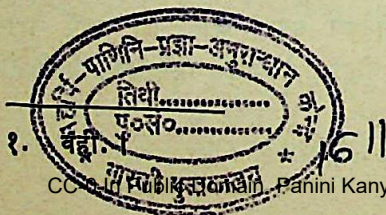 महर्षि-पाणिनि-प्रज्ञा-अनुसन्धान केन्द्र
तिथी..............
ए०सं०..............
१. वही. 1
16 ||
पुस्तकालय *
CC-0.In Public Domain. Panini Kany